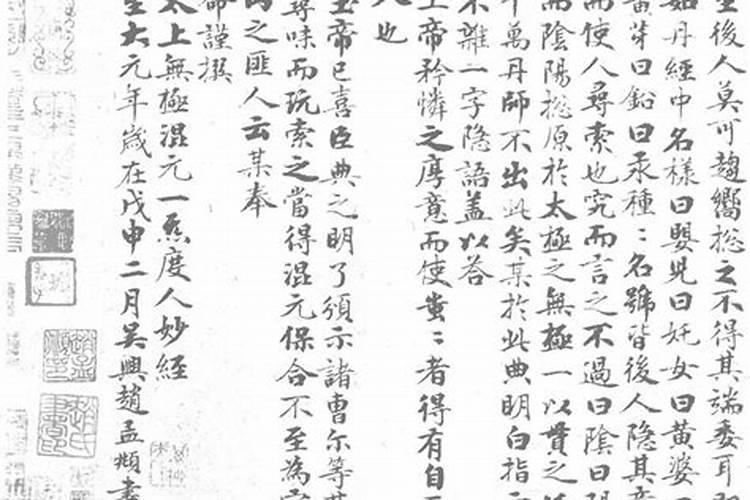 後人莫可趨嚮捴之不得其端委耳
如丹經中名樣曰嬰児曰奼女曰黄婆
黄芽曰鉛曰汞種:名號皆後人隐其
而使人尋索也究而言之不過曰陰曰
而陰陽捴原扵太極之無極一以貫之
千萬丹師不出此矣某扵此典明白指
不離一字隐語盖以荅
上帝矜憐之厚意而使蚩:者得有自
也
玉帝已喜臣典之明了頒示諸曹尔等
尋味而玩索之當得混元保合不至為
之匪人云某奉
命謹撰
太上無極混元一炁度人妙經
至大元年歳在戊申二月吴興趙孟頫書